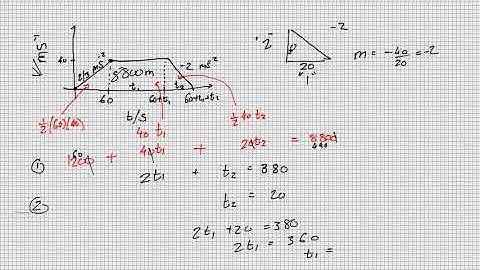 ms⁻¹
40
2/3 ms⁻²
8800m
-2 ms⁻²
t₁
t₂
60
60+t₁
60+t₁+t₂
t/s
½(60)(40)
40 t₁
½ 40 t₂
"2"
-2
20
"1"
m = -40/20 = -2
① 1200 + 40t₁ + 20t₂ = 8800
60
440
2t₁ + t₂ = 380
② t₂ = 20
2t₁ + 20 = 380
2t₁ = 360
t₁ =